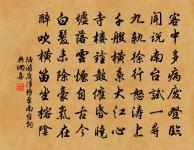 客中多病廢登臨
聞說南台試一尋
九軌徐行怒濤上
千艘橫繫大江心
寺樓鐘鼓催昏曉
墟落雲煙自古今
白髮未除豪氣在
醉吹橫笛坐榕陰
陸游度浮橋至南台詞
典網